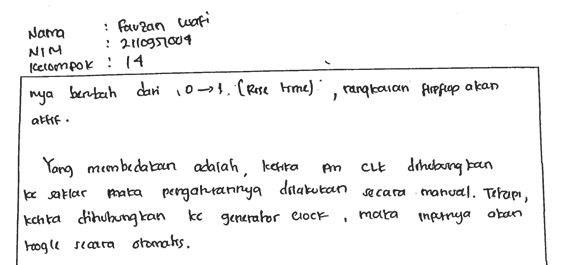 Nama : Fauzan Wafi
NIM : 2110951004
Kelompok : 14
nya berubah dari 0 → 1. (Rise time), rangkaian flipflop akan
aktif.
Yang membedakan adalah, ketika Pin CLK dihubungkan
ke saklar maka pengaturannya dilakukan secara manual. Tetapi,
ketika dihubungkan ke generator clock, maka inputnya akan
toogle secara otomatis.